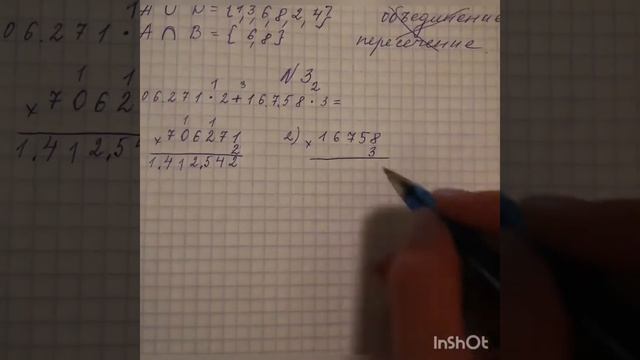 A ∪ B = {1,3,6,8,2,4} объединение
A ∩ B = {6,8} пересечение
N 3
1 3 2
06.271 · 2 + 16.758 · 3 =
1 1
× 706271
2
1.412.542
2) × 16758
3
06.271 ·
1 1
× 7062
1.412.54
InShOt